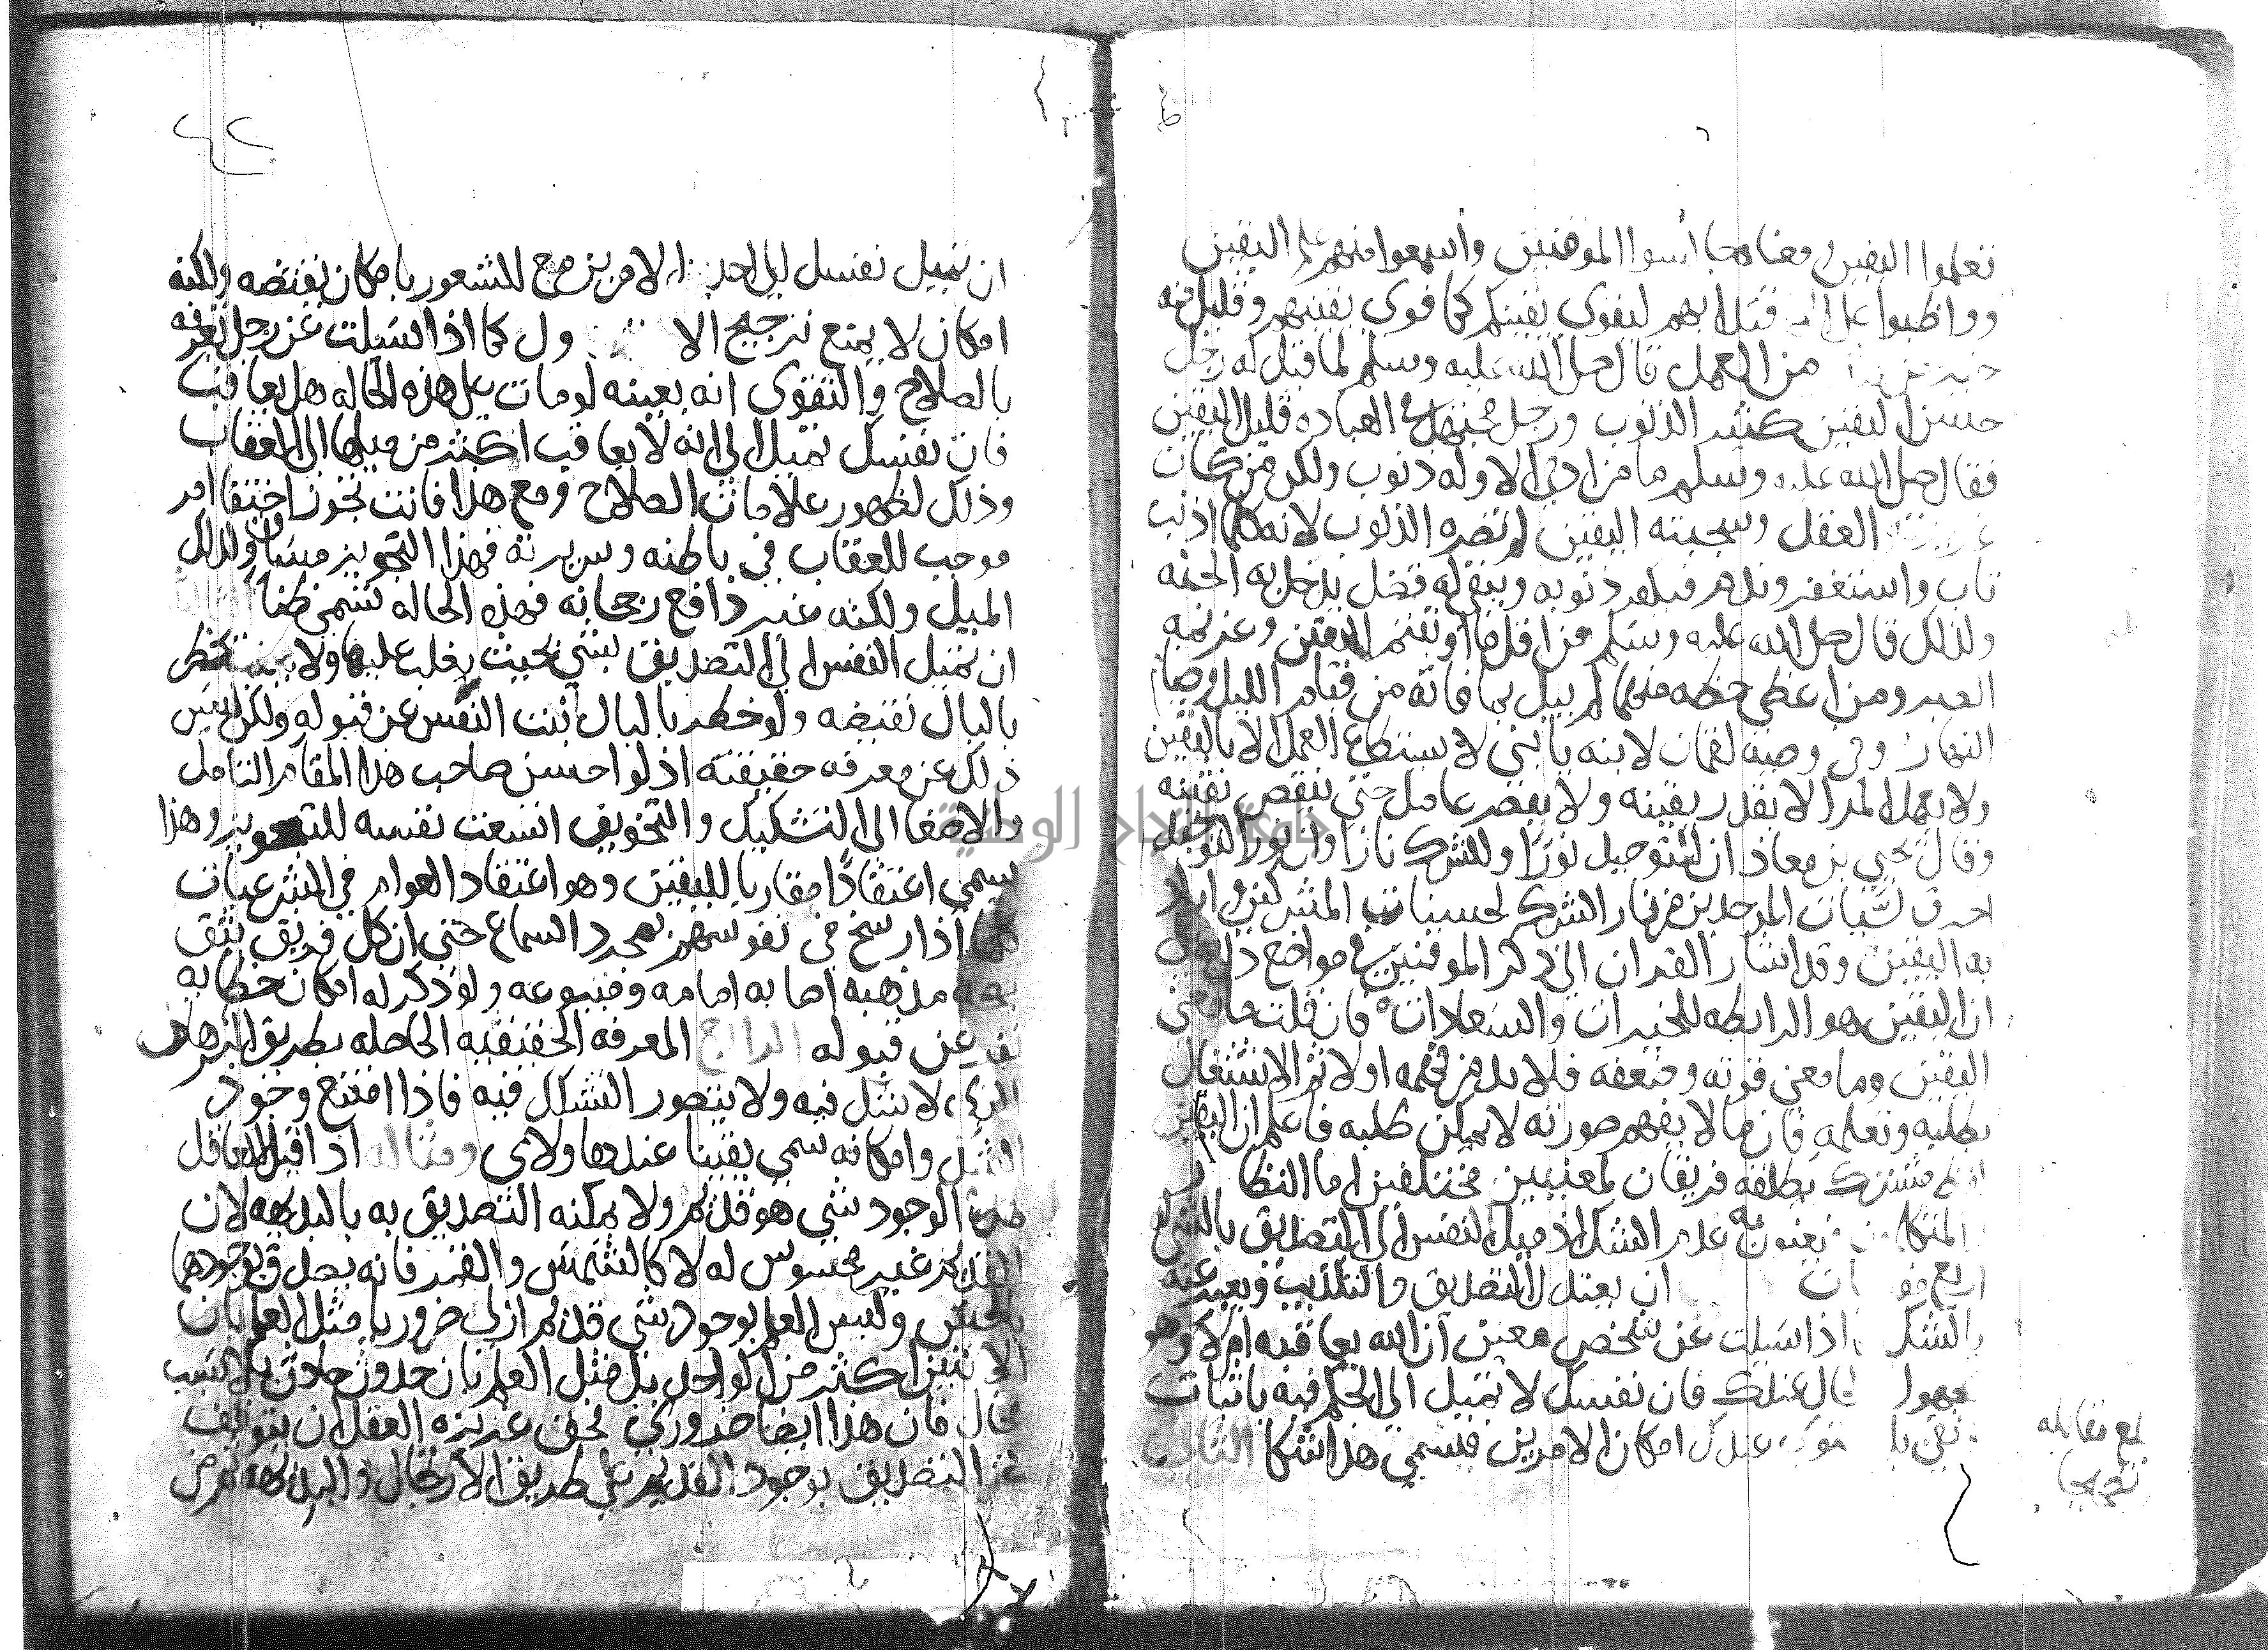 تعلموا اليقين ومعناه جالسوا الموقنين واسمعوا منهم علم اليقين
وواظبوا على اقتدا بهم ليقوى يقينكم كما قوي يقينهم وقليل من
خير من من العمل قال صلى الله عليه وسلم لما قيل له رجل
حسن اليقين كثير الذنوب ورجل مجتهد في العباده قليل اليقين
فقال صلى الله عليه وسلم ما من ادمي الا وله ذنوب ولكن من كان
العقل وسجيته اليقين لم تضره الذنوب لانه كلما اذنب
تاب واستغفر وندم فتكفر ذنوبه ويبقى له فضل يدخل به الجنه
ولذلك قال صلى الله عليه وسلم من اقل ما اوتيتم اليقين وعزيمه
الصبر ومن اعطي حظه منهما لم يبال بما فاته من قيام الليل وصيام
النهار وفي وصيه لقمان لابنه يا بني لا يستطاع العمل الا باليقين
ولا يعمل المرا الا بقدر يقينه ولا يقصر عامل حتى ينقص يقينه
وقال يحيى بن معاذ ان للتوحيد نورا وللشرك نارا وان نور التوحيد
احرق لسيات الموحدين من نار الشرك لحسنات المشركين واراد
به اليقين وقد اشار القران الى ذكر الموقنين في مواضع دل بها على
ان اليقين هو الرابطه للخيرات والسعادات فان قلت ما معنى
اليقين وما معنى قوته وضعفه فلا بد من فهمه اولا ثم الاشتغال
بطلبه وتعلمه فان ما لا يفهم صورته لا يمكن طلبه فاعلم ان اليقين
لفظ مشترك يطلقه فريقان لمعنيين مختلفين اما النظار
المتكلمون فيعنون به عدم الشك اذ ميل النفس الى التصديق بالشي له
اربع مقامات ان يعتدل التصديق والتكذيب ويعبر عنه
بالشك اذا سيلت عن شخص معين ان الله يعاقبه ام لا وهو
مجهول الحال عندك فان نفسك لا تميل الى الحكم فيه باثبات
نفي بل يستوي عندك امكان الامرين فيسمى هذا شكا الثاني
بلغ مقابله
تصحيحا
ان تميل نفسك الى احد الامرين مع الشعور بامكان نقيضه ولكنه
امكان لا يمنع ترجيح الاول كما اذا سيلت عن رجل تعرفه
بالصلاح والتقوى انه بعينه لو مات على هذه الحاله هل يعاقب
فان نفسك تميل الى انه لا يعاقب اكثر من ميلها الى العقاب
وذلك لظهور علامات الصلاح ومع هذا فانت تجوز اختفا امر
موجب للعقاب في باطنه وسريرته فهذا التجويز مساو لذلك
الميل ولكنه غير دافع رجحانه فهذه الحاله تسمى ظنا
ان تميل النفس الى التصديق بشي بحيث يغلب عليها ولا يخطر
بالبال نقيضه ولو خطر بالبال نبت النفس عن قبوله ولكن ليس
ذلك عن معرفه حقيقيه اذ لو احسن صاحب هذا المقام التامل
والاصغا الى التشكيك والتخويف اتسعت نفسه للتجويز وهذا
يسمى اعتقادا مقاربا لليقين وهو اعتقاد العوام في الشرعيات
كلها اذا رسخ في نفوسهم بمجرد السماع حتى ان كل فريق يثق
بصحه مذهبه اصابه امامه ومتبوعه ولو ذكر له امكان خطا به
نفر عن قبوله الرابع المعرفه الحقيقيه الحاصله بطريق البرهان
الذي لا يشك فيه ولا يتصور التشكك فيه فاذا امتنع وجود
الشك وامكانه سمي يقينا عند هاولاي ومثاله اذا قيل للعاقل
هل في الوجود شي هو قديم ولا يمكنه التصديق به بالبديهه لان
القديم غير محسوس له لا كالشمس والقمر فانه يصدق بوجودهما
بالحس وليس العلم بوجود شي قديم ازلي ضروريا مثل العلم بان
الاثنين اكثر من الواحد بل مثل العلم بان حدوث حادث بلا سبب
محال فان هذا ايضا ضروري فحق غريزه العقل ان يتوقف
عن التصديق بوجود القديم على طريق الارتجال والبديهه ثم من